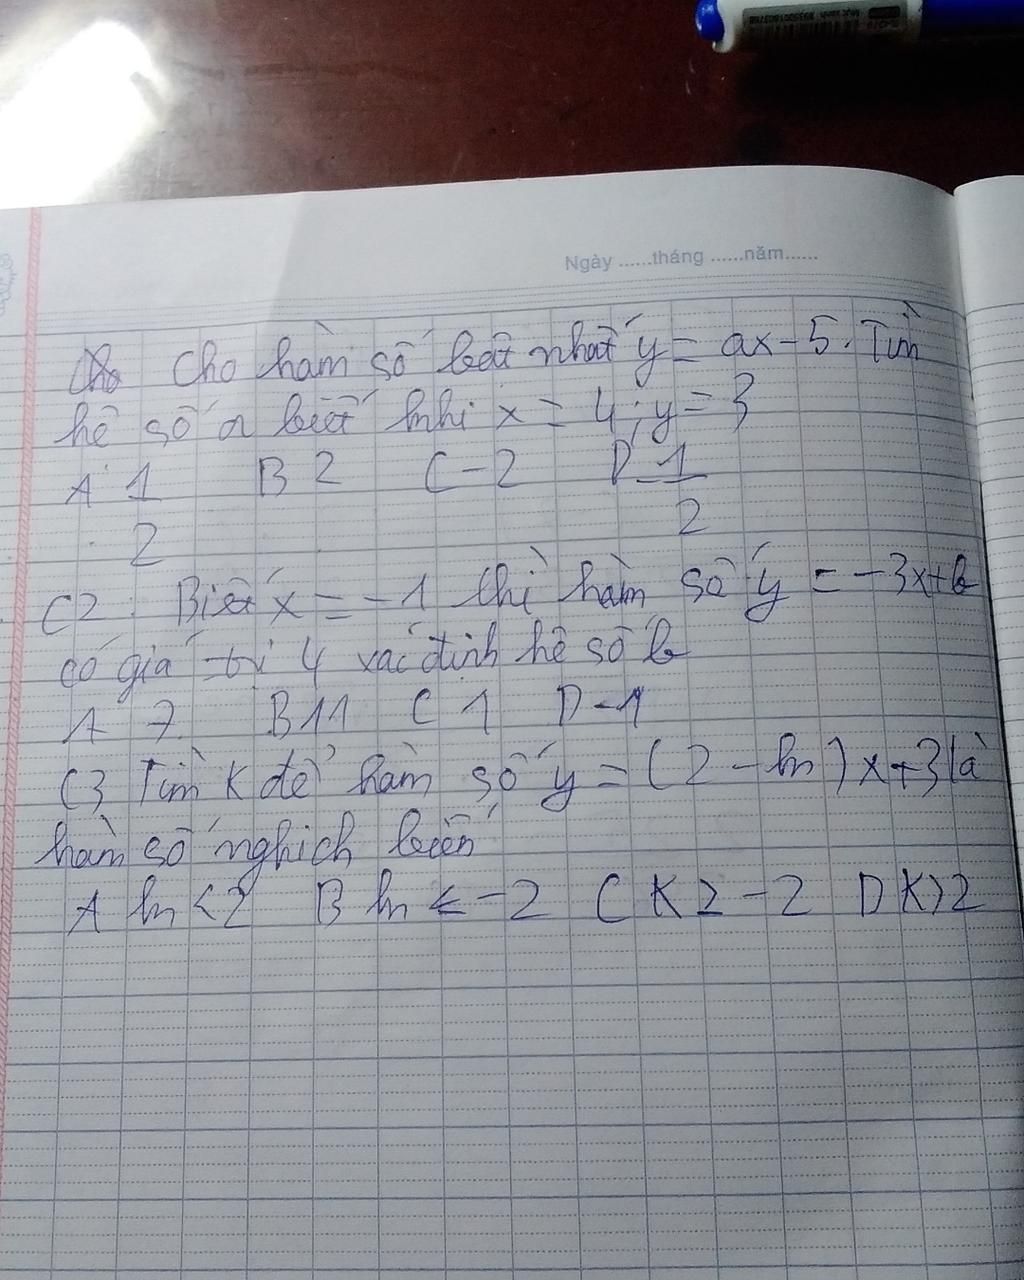 Ngày ......tháng ......năm......
Cho hàm số bậc nhất y = ax - 5. Tìm
hệ số a biết khi x = 4; y = 3
A 1/2 B 2 C -2 D -1/2
C2. Biết x = -1 thì hàm số y = -3x+b
có giá trị 4 xác định hệ số b
A 7. B 11 C 1 D -1
C3 Tìm K để hàm số y = (2 - k)x+3 là
hàm số nghịch biến
A k < 2 B k < -2 C K ≥ -2 D K > 2